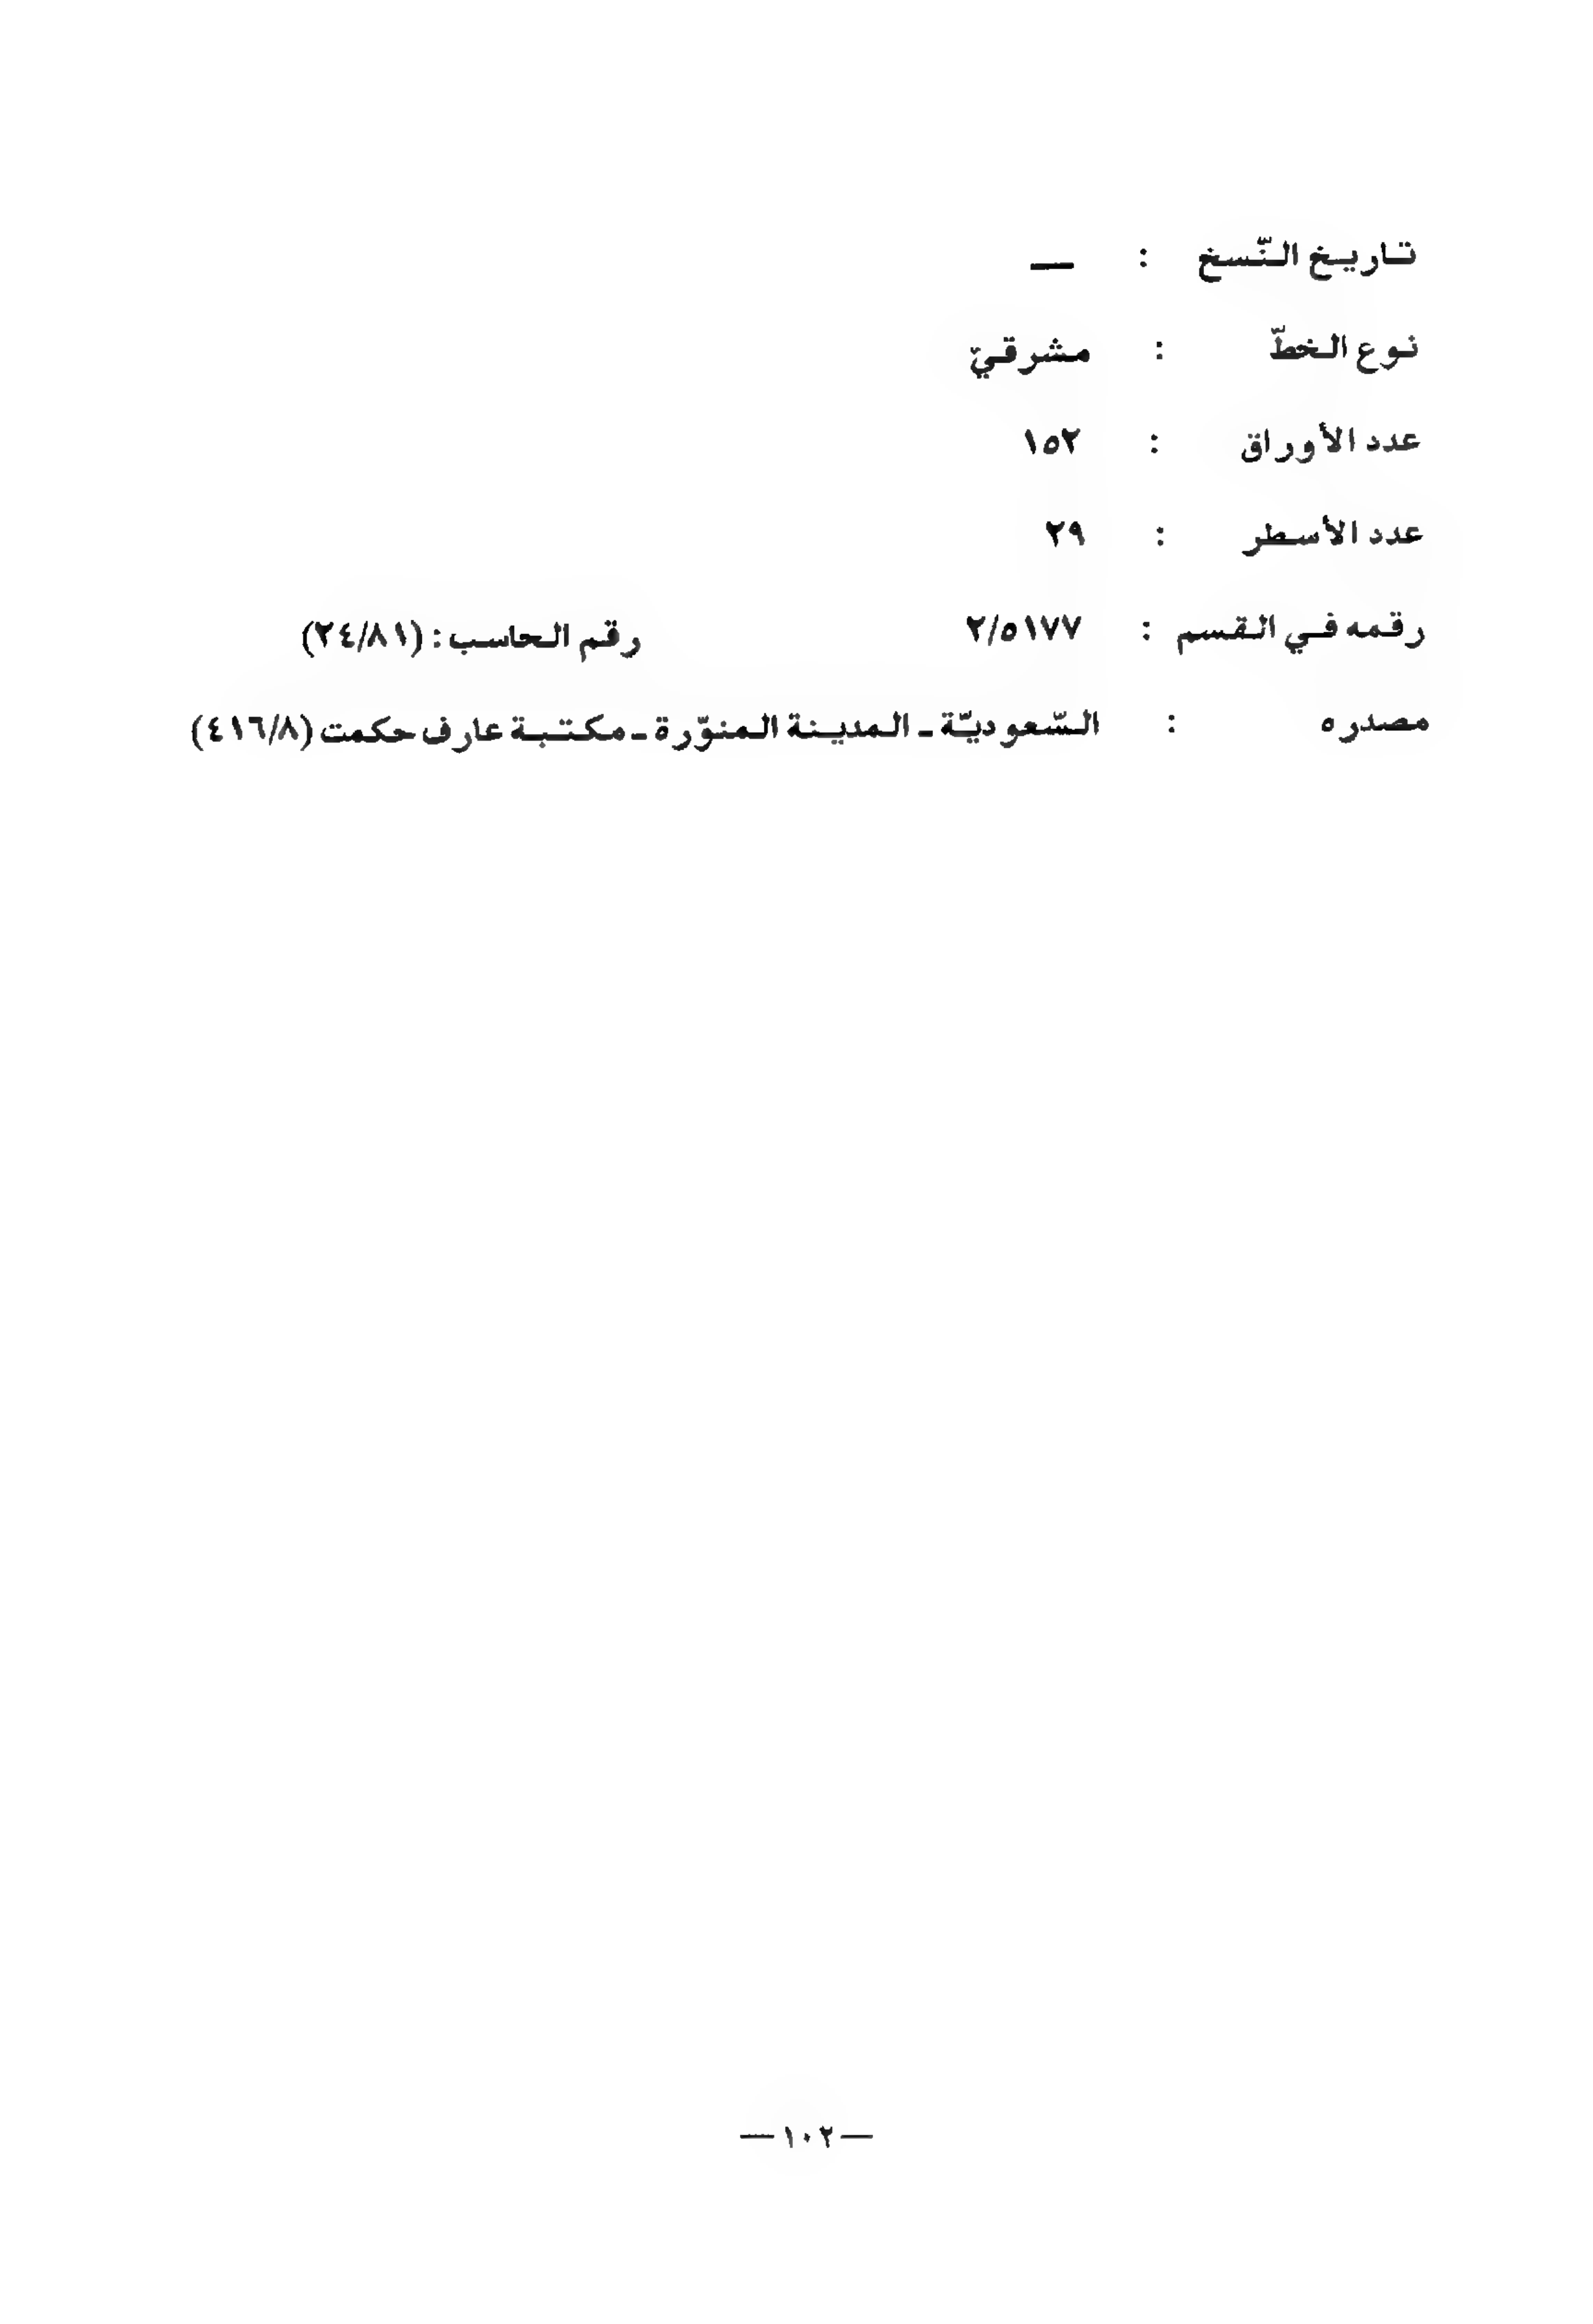 تاريخ النّسخ : —
نوع الخطّ : مشرقيّ
عدد الأوراق : ١٥٢
عدد الأسطر : ٢٩
رقمه في القسم : ٢/٥١٧٧ رقم الحاسب : (٢٤/٨١)
مصدره : السّعوديّة ـ المدينة المنوّرة ـ مكتبة عارف حكمت (٤١٦/٨)
— ١٠٢ —